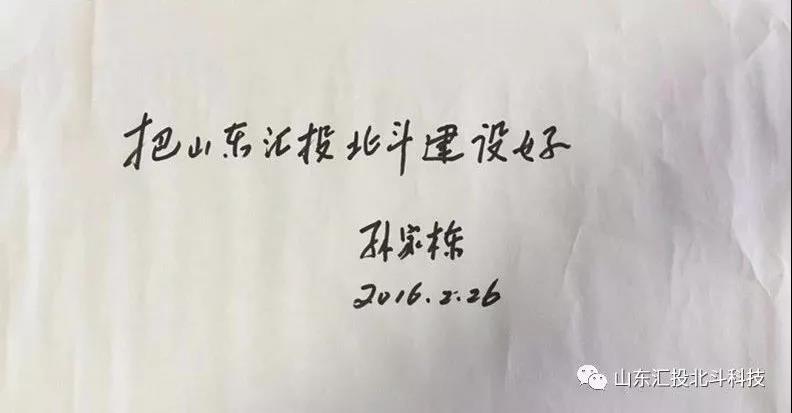 把山东汇投北斗建设好
孙家栋
2016.2.26
山东汇投北斗科技